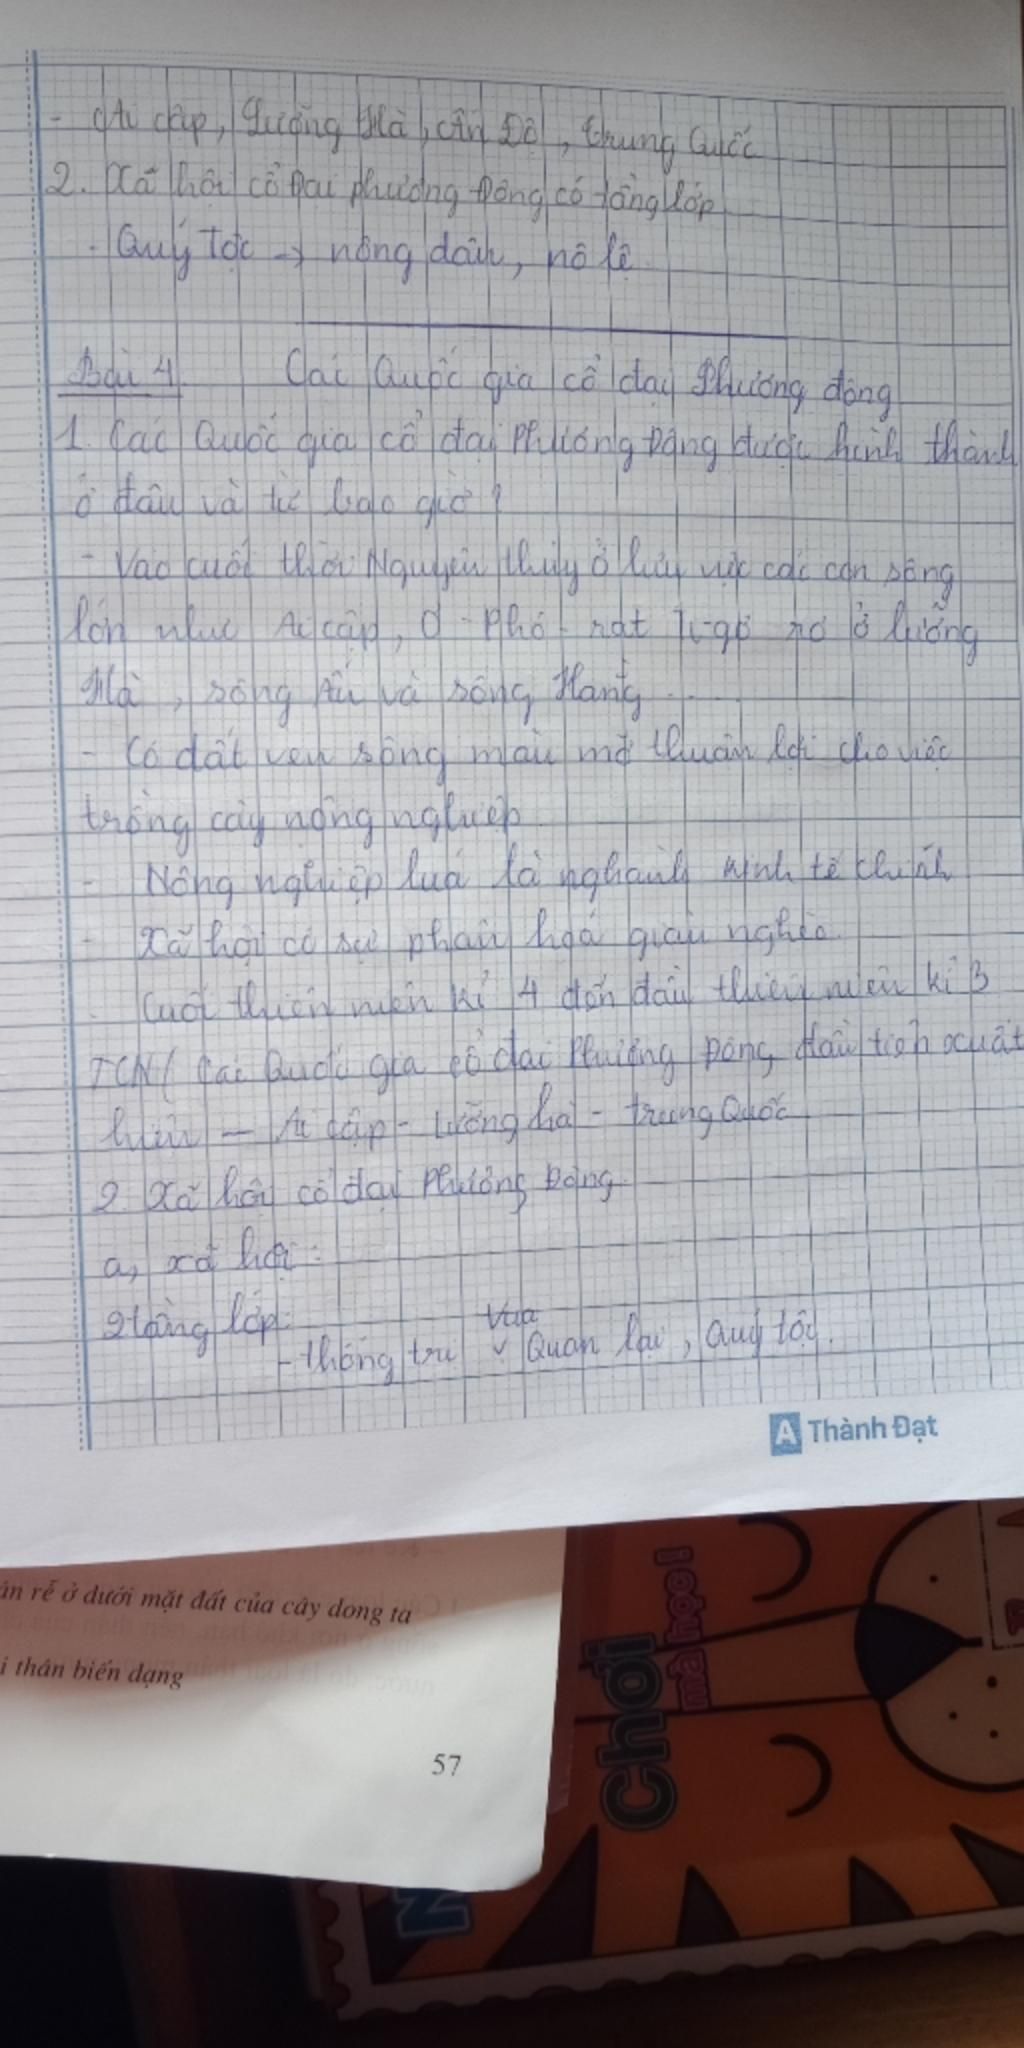 - Ai cập, Lưỡng Hà, Ấn Độ, Trung Quốc
2. Xã hội cổ đại phương Đông có tầng lớp
- Quý Tộc → nông dân, nô lệ
Bài 4 Các Quốc gia cổ đại Phương đông
1. Các Quốc gia cổ đại Phương Đông được hình thành
ở đâu và từ bao giờ?
- Vào cuối thời Nguyên thủy ở lưu vực các con sông
lớn như Ai cập, Ơ - Phơ - rat Ti-gơ rơ ở lưỡng
Hà, sông Ấn và sông Hằng
- Có đất ven sông màu mỡ thuận lợi cho việc
trồng cây nông nghiệp
- Nông nghiệp luá là nghành kinh tế chính
- Xã hội có sự phân hoá giàu nghèo.
- Cuối thiên niên kỉ 4 đến đầu thiên niên kỉ 3
TCN ( Các Quốc gia cổ đại Phương Đông đầu tiên xuất
hiện - Ai cập - Lưỡng hà - trung Quốc
2. Xã hội cổ đại Phương Đông
a, xã hội:
2 tầng lớp:
- thống trị Vua Quan lại, quý tộc.
A Thành Đạt
rễ ở dưới mặt đất của cây dong ta
thân biến dạng
57
Chơi
mà học!